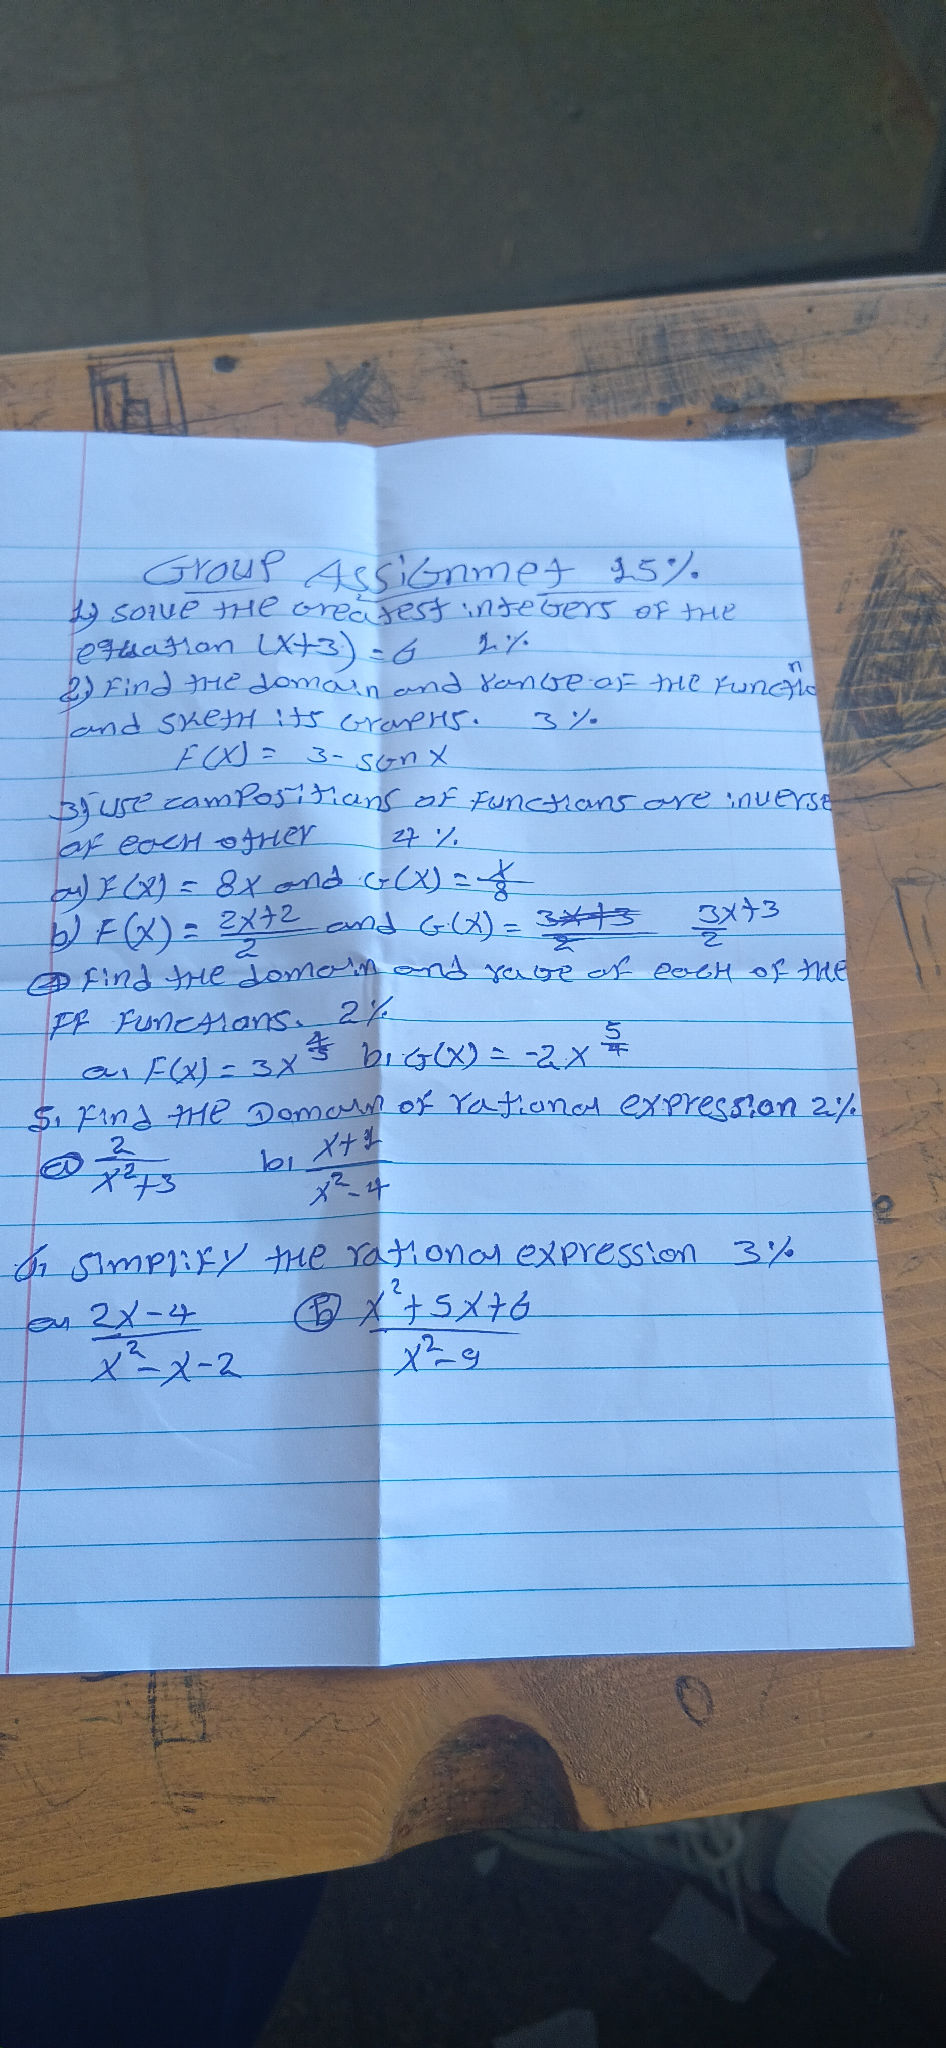 Group Assignmet 15%
1) solve the Greatest integers of the
equation (x+3) = 6 1%
2) Find the domain and range of the Function
and sketh its Graphs. 3%
F(x) = 3 - sgn x
3) use compositions of Functions are inverse
of each other 4%
a) F(x) = 8x and G(x) = x/8
b) F(x) = 2x+2/2 and G(x) = 3x+3/2 3x+3/2
4) Find the domain and rage of each of the
FF Functions. 2%
a, F(x) = 3x^4/5 b, G(x) = -2x^5/4
5, Find the Domain of rational expression 2%
a) 2/x²+3 b, x+1/x²-4
6, simplify the rational expression 3%
a, 2x-4/x²-x-2 b) x²+5x+6/x²-9